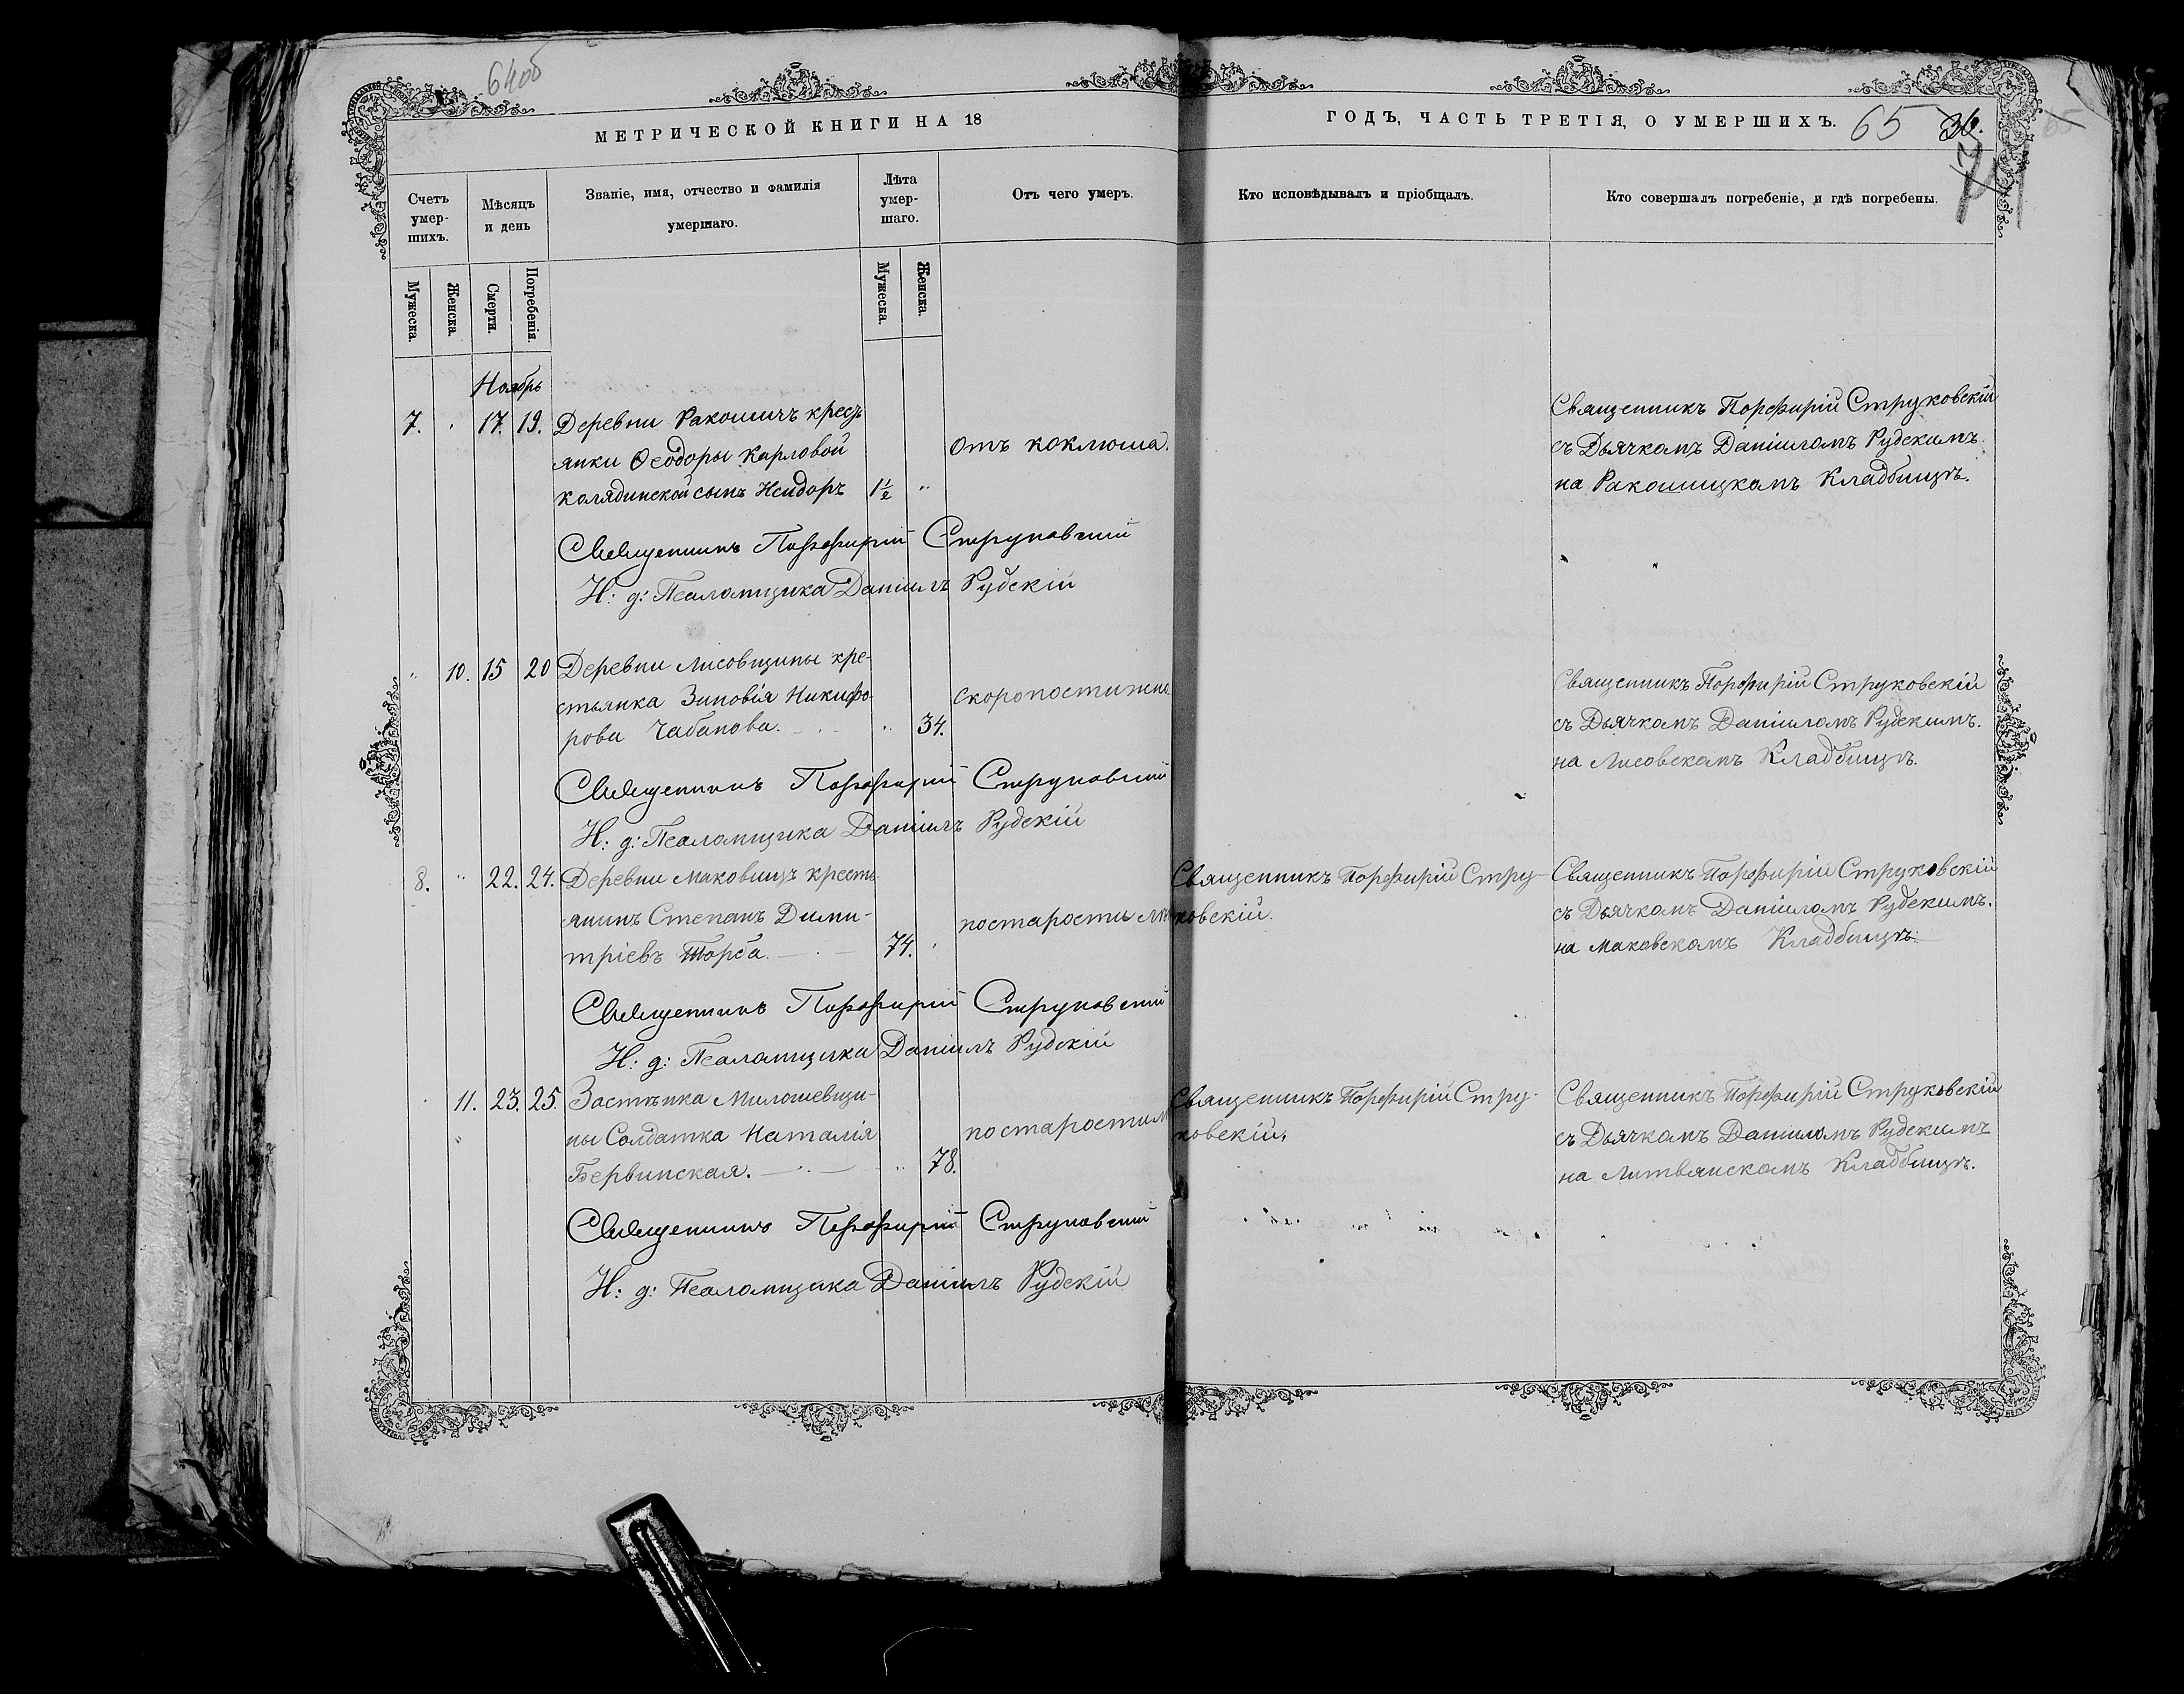 64об
МЕТРИЧЕСКОЙ КНИГИ НА 18
ГОДЪ, ЧАСТЬ ТРЕТІЯ, О УМЕРШИХЪ.
65 36.
Счетъ умер-шихъ.
Мѣсяцъ и день
Званіе, имя, отчество и фамилія
умершаго.
Лѣта умер-шаго.
Отъ чего умеръ.
Кто исповѣдывалъ и пріобщалъ.
Кто совершалъ погребеніе, и гдѣ погребены.
Мужеска.
Женска.
Смерти.
Погребенія.
Мужеска.
Женска.
Ноябрь
7. 17. 19. Деревни Ракошичъ кресть
янки Ѳеодоры Карловой
Колядинской сынъ Исидоръ 1½ "
отъ коклюша.
Священникъ Порфирій Струковскій
съ Дьячкомъ Даніиломъ Рудскимъ
на Ракошицкомъ Кладбищѣ.
Священникъ Порфирій Струковскій
И: д: Псаломщика Даніилъ Рудскій
" 10. 15 20 Деревни Лисовщины кре-
стьянка Зиновія Никифо-
рова Чабанова. " 34.
скоропостижно
Священникъ Порфирій Струковскій
съ Дьячкомъ Даніиломъ Рудскимъ.
на Лисовскомъ Кладбищѣ.
Священникъ Порфирій Струковскій
И: д: Псаломщика Даніилъ Рудскій
8. " 22. 24. Деревни Маковищъ кресть
янинъ Степанъ Дими-
тріевъ Торба. 74.
по старости лѣ
Священникъ Порфирій Стру-
ковскій.
Священникъ Порфирій Струковскій
съ Дьячкомъ Даніиломъ Рудскимъ.
на Маковскомъ Кладбищѣ.
Священникъ Порфирій Струковскій
И: д: Псаломщика Даніилъ Рудскій
11. 23. 25. Застѣнка Милошевщи-
ны Солдатка Наталія
Бервинская. " 78.
по старости л
Священникъ Порфирій Стру-
ковскій.
Священникъ Порфирій Струковскій
съ Дьячкомъ Даніиломъ Рудскимъ
на Литвянскомъ Кладбищѣ.
Священникъ Порфирій Струковскій
И: д: Псаломщика Даніилъ Рудскій